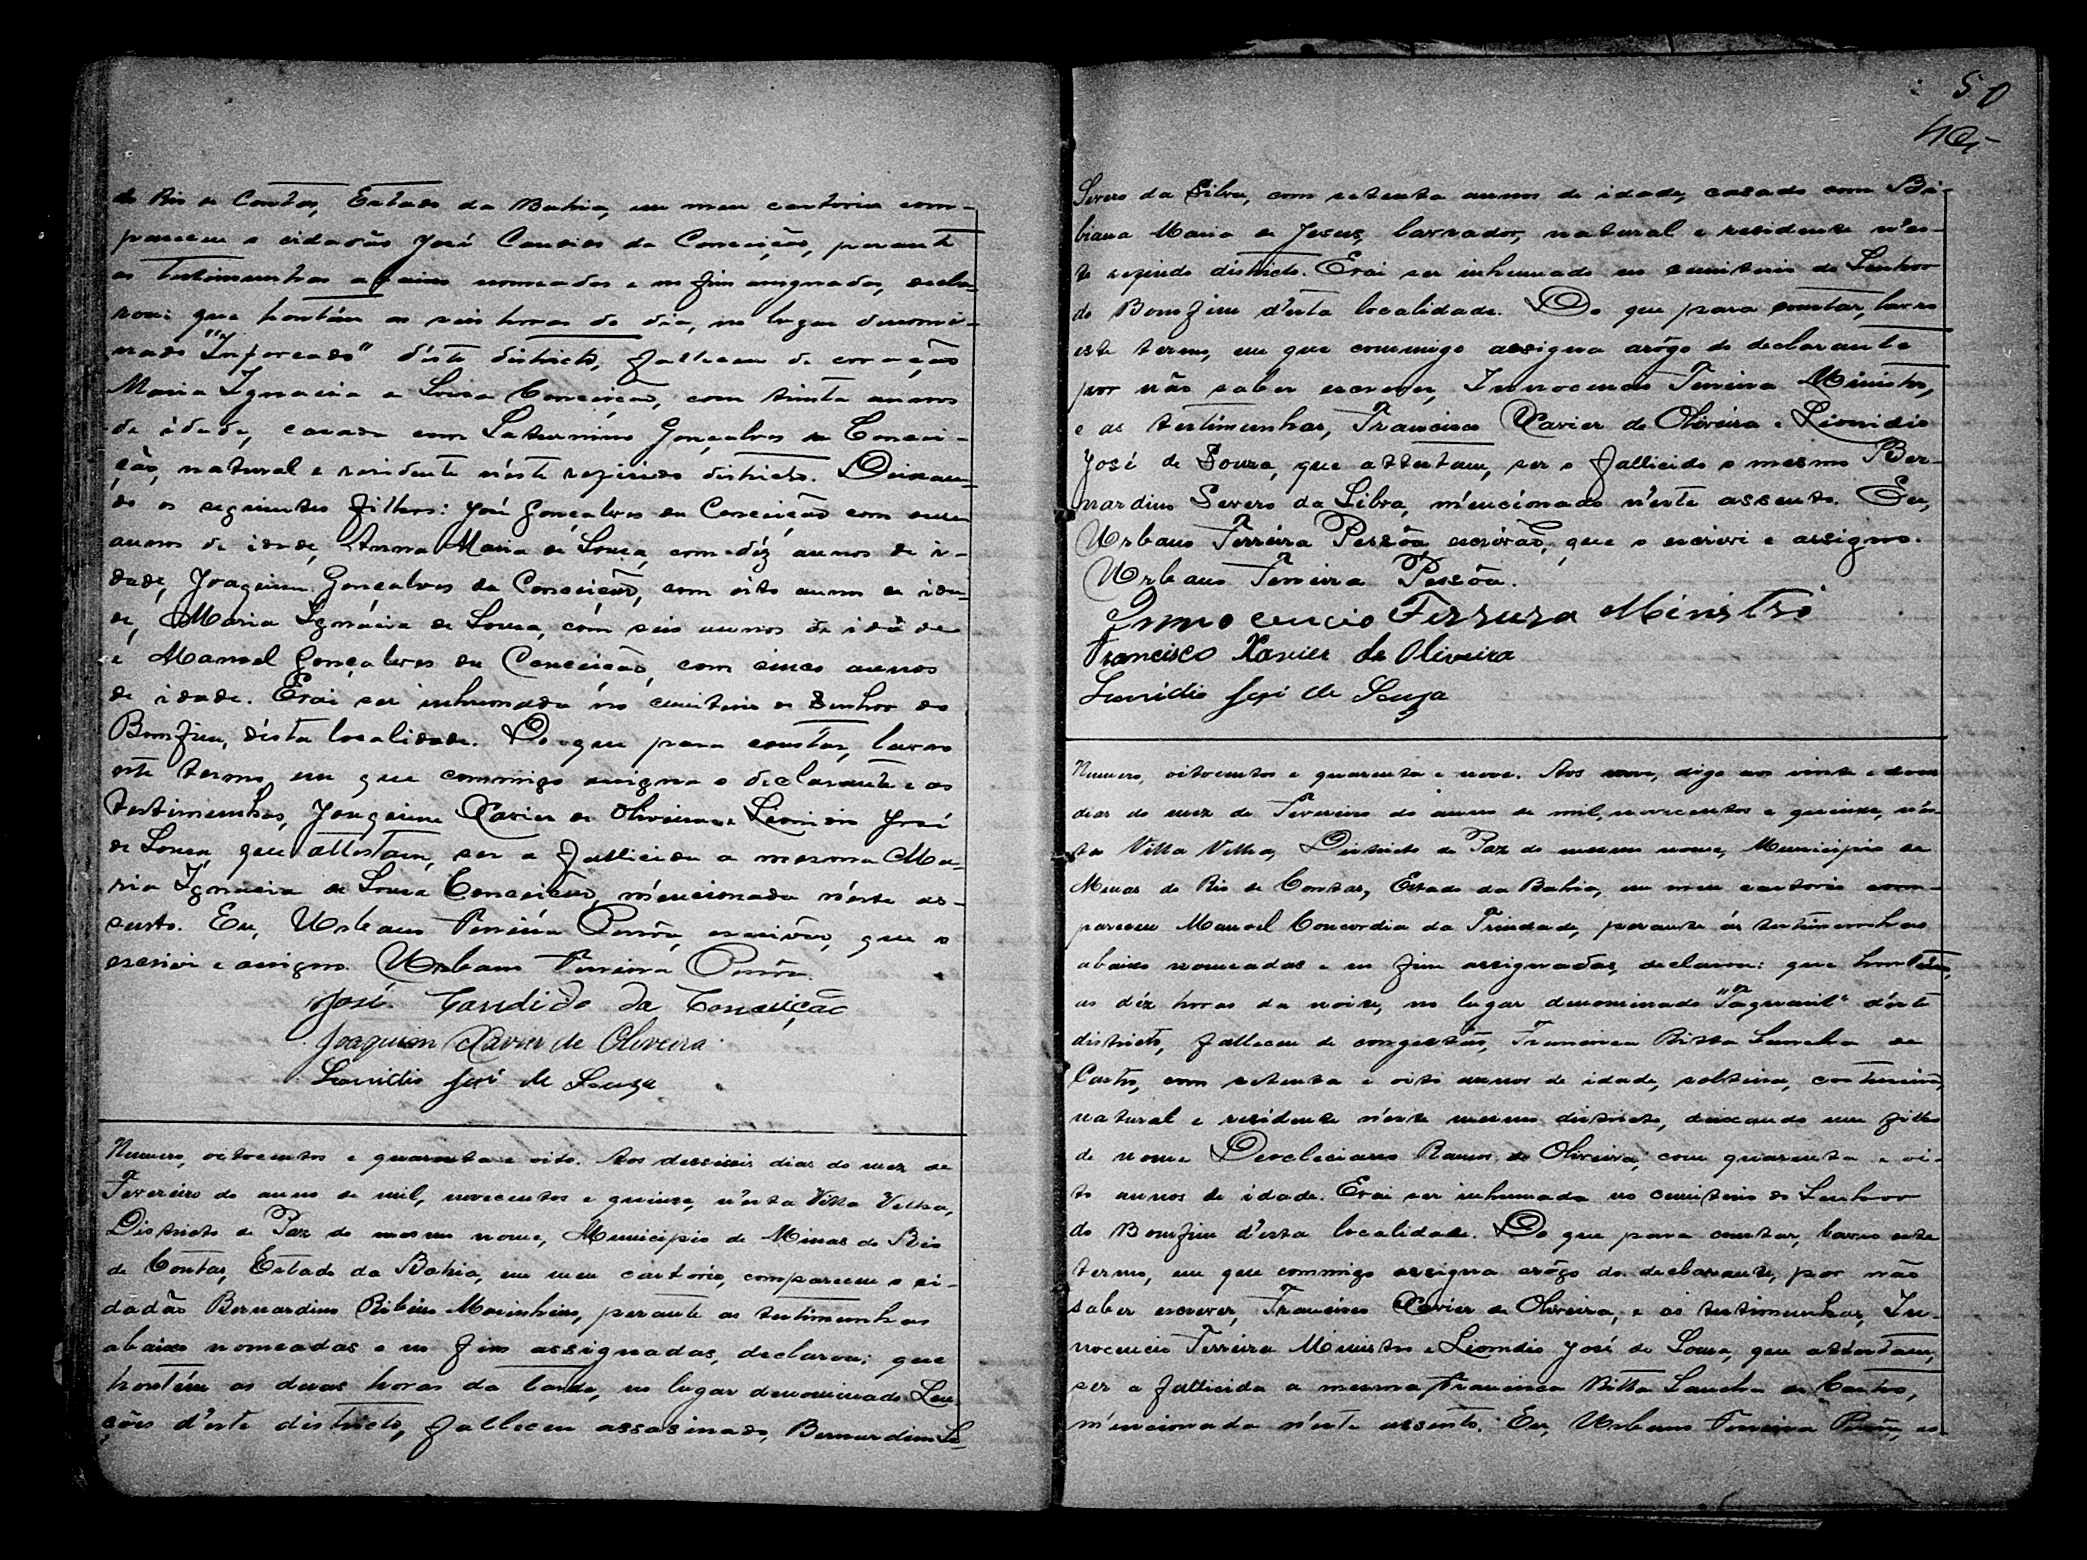 de Rio de Contas, Estado da Bahia, em meu cartorio com-
pareceu o cidadão José Candido da Conceição, perante
as testimunhas abaixo nomeadas e no fim assignadas, decla-
rou: que hontém as seis horas do dia, no lugar denomi-
nado "Inforcado" d'éste districto, falleceu de coração
Maria Ignacia de Souza Conceição, com trinta annos
de idade, casada com Saturnino Gonçalves da Concei-
ção, natural e residente n'éste referido districto. Deixan-
do os seguintes filhos: José Gonçalves da Conceição com onze
annos de idade, Anna Maria de Souza, com déz annos de i-
dade, Joaquim Gonçalves da Conceição, com oito annos de ida-
de, Maria Ignácia de Souza, com seis annos de idade
é Manoel Gonçalves da Conceição, com cinco annos
de idade. Érai ser inhumada no cemiterio do Senhor do
Bomfim, désta localidade. Do que para constar, lavro
este termo, em que commigo assigna o declarante e as
testimunhas, Joaquim Xavier de Oliveira e Leonidio José
de Souza, que attestam, ser a fallicida a mesma Ma-
ria Ignacia de Souza Conceição, méncionada n'éste as-
sento. Eu, Urbano Ferreira Pessôa, escrivão, que o
escrevi e assigno. Urbano Ferreira Pessôa.
José Candido da Conceição
Joaquim Xavier de Oliveira
Leonidio José de Souza
Numero, oitocentos e quarenta e oito. Aos desseseis dias do mez de
Fevereiro do anno de mil, novecentos e quinze, n'ésta Villa Velha,
Districto de Paz do mesmo nome, Municipio de Minas do Rio
de Contas, Estado da Bahia, em meu cartorio, compareceu o ci-
dadão Bernardino Ribeiro Marinheiro, perante as testimunhas
abaixo nomeadas e no fim assignadas, declarou: que
hontém as duas horas da tarde, no lugar denominado Lan-
ções d'este districto, falleceu assasinado, Bernardino Se-
50
Severo da Silva, com setenta annos de idade, casado com Bi-
biana Maria de Jesus, lavrador, natural e residente n'és-
te referido districto. Érai ser inhumado no cemiterio do Senhor
do Bomfim d'ésta localidade. Do que para constar, lavro
este termo, em que commigo assigna arôgo do declarante
por não saber escrever, Innocencio Ferreira Ministro,
e as testimunhas, Francisco Xavier de Oliveira e Leonidio
José de Souza, que attestam, ser o fallicido o mesmo Ber-
nardino Severo da Silva, méncionado n'éste assento. Eu,
Urbano Ferreira Pessôa escrivão, que o escrevi e assigno.
Urbano Ferreira Pessôa.
Innocencio Ferreira Ministro
Francisco Xavier de Oliveira
Leonidio José de Souza
Numero, oitocentos e quarenta e nove. Aos nove, digo aos vinte e dous
dias do mez de Fevereiro do anno de mil, novecentos e quinze, n'és-
ta Villa Velha, Districto de Paz do mesmo nome, Municipio de
Minas do Rio de Contas, Estado da Bahia, em meu cartorio com-
pareceu Manoel Concordia da Trindade, perante ás testimunhas
abaixo nomeadas e no fim assignadas, declarou: que hontém,
as déz horas da noite, no lugar denominado d'éste
districto, falleceu de congestão, Francisca Ritta Sancha de
Castro, com setenta e oito annos de idade, solteira, costureira,
natural e residente n'éste mesmo districto, deixando um filho
de nome Deocleciano Ramos de Oliveira, com quarenta e oi-
to annos de idade. Érai ser inhumada no cemiterio do Senhor
do Bomfim d'ésta localidade. Do que para constar, lavro este
termo, em que commigo assigna arôgo do declarante, por não
saber escrever, Francisco Xavier de Oliveira, e as testimunhas, In-
nocencio Ferreira Ministro e Leonidio José de Souza, que attestam,
ser a fallicida a mesma Francisca Ritta Sancha de Castro,
méncionada n'éste assento. Eu, Urbano Ferreira Pessôa, es-